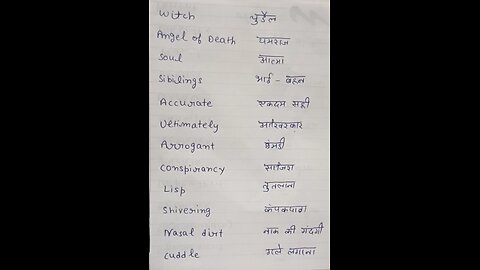 Witch चुडैल
Angel of Death यमराज
Soul आत्मा
Sibilings भाई - बहन
Accurate एकदम सही
Ultimately आखिरकार
Arrogant घमंडी
Conspirancy साजिश
Lisp तुतलाना
Shivering कंपकपाना
Nasal dirt नाक की गंदगी
Cuddle गले लगाना